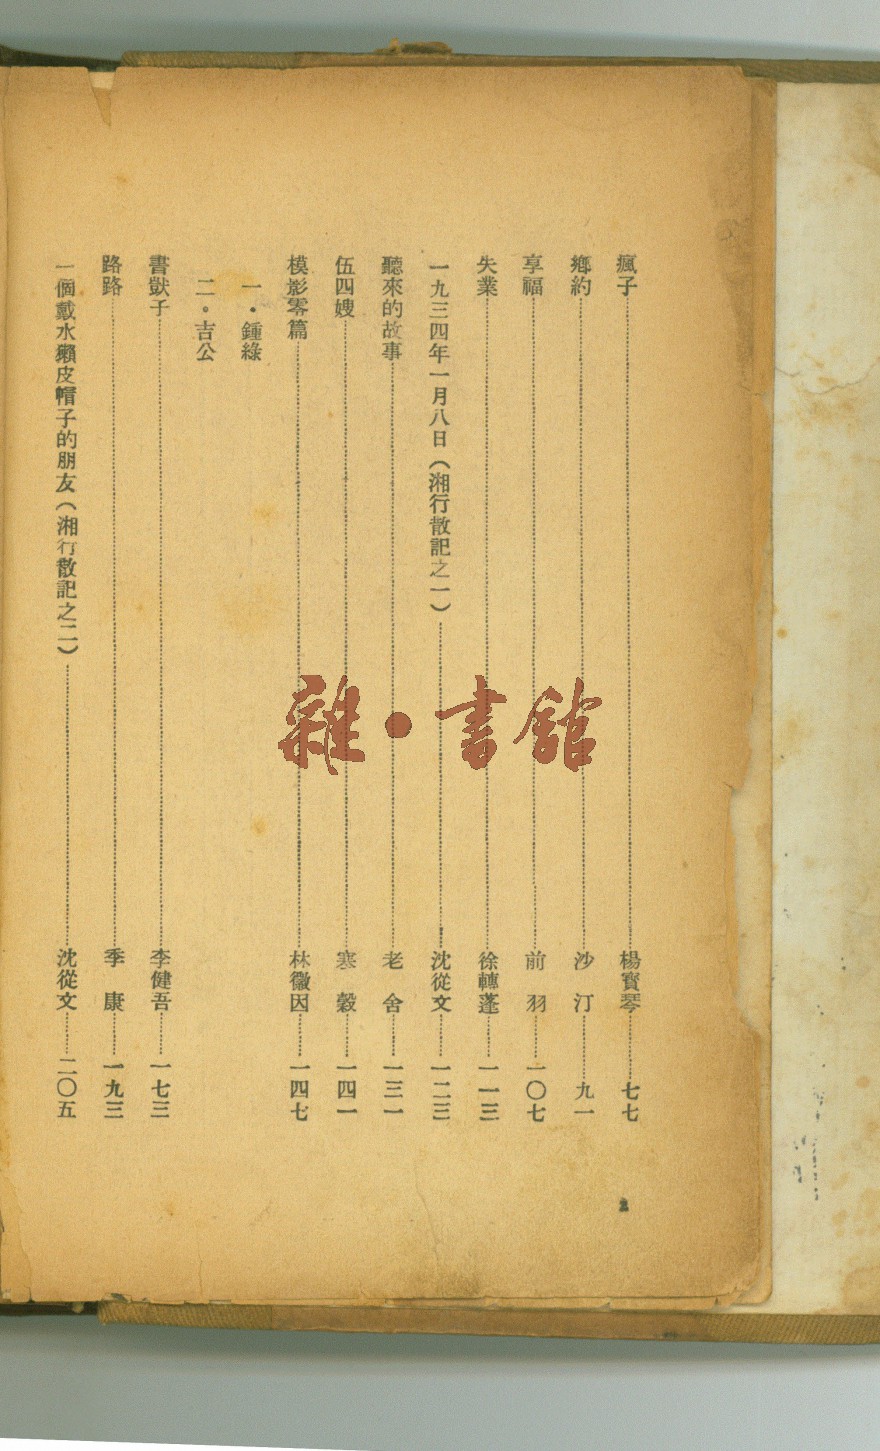 瘋子……楊寳琴……七七
鄉約……沙 汀……九一
享福……前 羽……一〇七
失業……徐轉蓬……一一三
一九三四年一月八日（湘行散記之一）……沈從文……一二三
聽來的故事……老 舍……一三一
伍四嫂……寒 穀……一四一
模影零篇……林徽因……一四七
一・鍾綠
二。吉公
書獃子……李健吾……一七三
路路……季 康……一九三
一個戴水獺皮帽子的朋友（湘行散記之二）……沈從文……二〇五
2
雜・書館